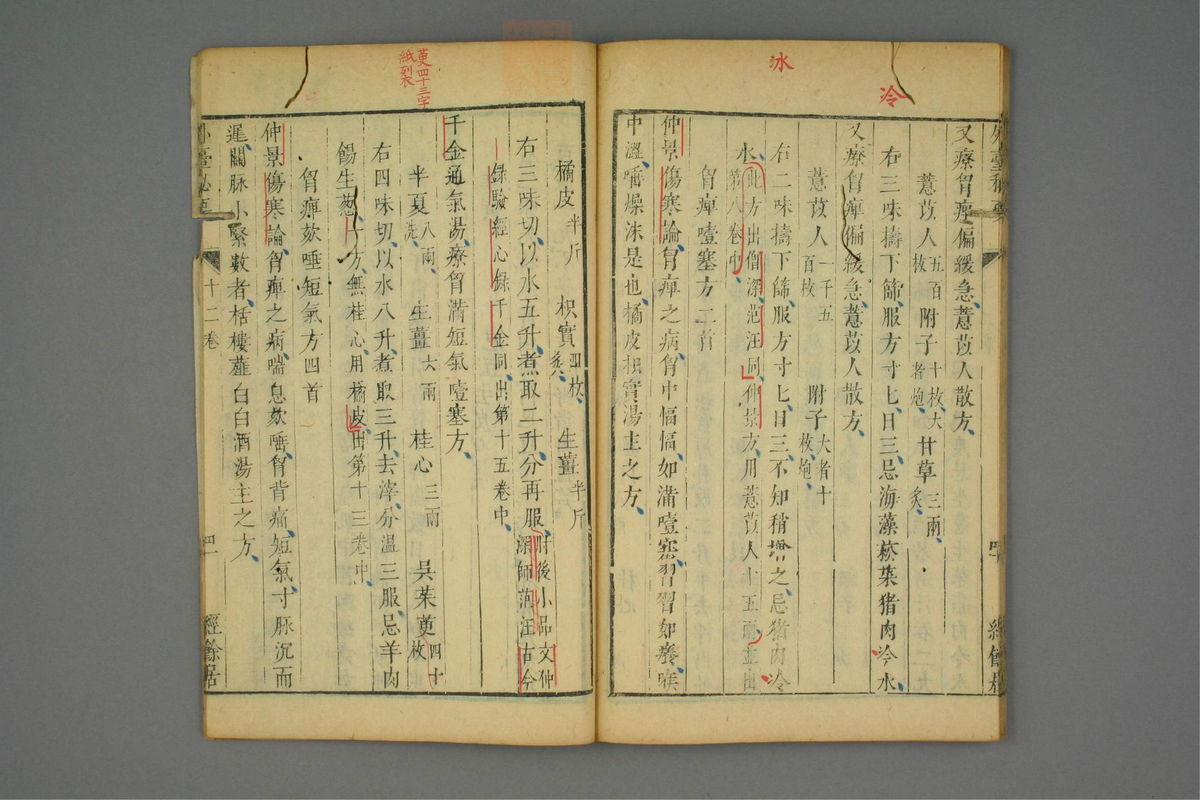 冰
冷
外臺秘要
經餘居
又療胷痺偏緩急、薏苡人散方、
薏苡人五百枚 附子十枚大者炮、 甘草三兩、炙、
右三味擣下篩、服方寸七、日三忌海藻菘菜猪肉冷水、
又療胷痺偏緩急、薏苡人散方、
薏苡人一千五百枚 附子大者十枚炮、
右二味擣下篩、服方寸七、日三不知稍增之、忌猪肉冷
水、此方出僧深、范汪同、仲景方用薏苡人十五兩、並出第八卷中、
胷痺噎塞方二首
仲景傷寒論、胷痺之病、胷中愊愊、如滿噎塞習習如癢喉
中澀唾燥沫是也、橘皮枳實湯主之方、
橘皮半斤 枳實四枚、炙、 生薑半斤
右三味切、以水五升、煮取二升、分再服、肘後小品文仲深師范汪古今
錄驗經心錄千金同、出第十五卷中、
千金通氣湯、療胷滿短氣噎塞方、
半夏八兩、洗、 生薑六兩 桂心三兩 吳茱萸四十枚
右四味切、以水八升、煮取三升、去滓、分温三服、忌羊肉
餳生葱、一方無桂心、用橘皮、出第十三卷中、
胷痺欬唾短氣方四首
仲景傷寒論、胷痺之病、喘息欬唾、胷背痛、短氣、寸脉沉而
遲、關脉小緊數者、栝樓薤白白酒湯主之方、
外臺秘要
十二卷
經餘居
萸四十三字
紙裂